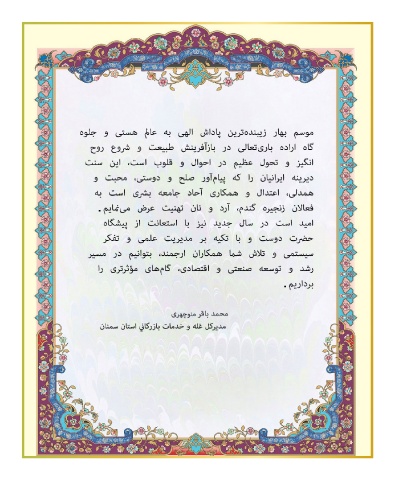 موسم بهار زیبنده‌ترین پاداش الهی به عالم هستی و جلوه
گاه اراده باری‌تعالی در بازآفرینش طبیعت و شروع روح
انگیز و تحول عظیم در احوال و قلوب است، این سنت
دیرینه ایرانیان را که پیام‌آور صلح و دوستی، محبت و
همدلی، اعتدال و همکاری آحاد جامعه بشری است به
فعالان زنجیره گندم، آرد و نان تهنیت عرض می‌نمایم .
امید است در سال جدید نیز با استعانت از پیشگاه
حضرت دوست و با تکیه بر مدیریت علمی و تفکر
سیستمی و تلاش شما همکاران ارجمند، بتوانیم در مسیر
رشد و توسعه صنعتی و اقتصادی، گام‌های مؤثرتری را
برداریم .
محمد باقر منوچهری
مدیرکل غله و خدمات بازرگانی استان سمنان